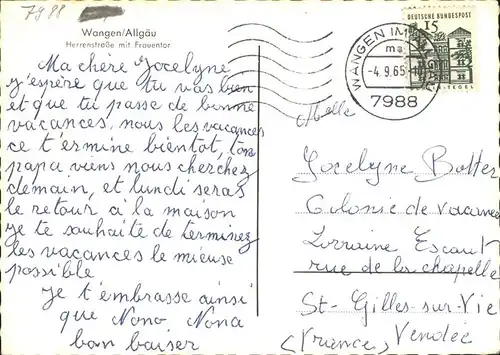 7988
Wangen/Allgäu
Herrenstraße mit Frauentor
Ma chère Jocelyne
j'espère que tu vas bien
et que tu passe de bonne
vacances, nous les vacances
ce t'ermine bientot, ton
papa viens nous cherchez
demain, et lundi seras
le retour à la maison
je te souhaite de terminez
les vacances le mieuse
possible
je t'embrasse ainsi
que Nono, Nona
bon baiser
DEUTSCHE BUNDESPOST
15
TEGEL
WANGEN IM
-4.9.65
7988
Melle
Jocelyne
Colonie de vacance
Lorraine Escaut
rue de la chapelle
St-Gilles-sur-Vie
(France) Vendée